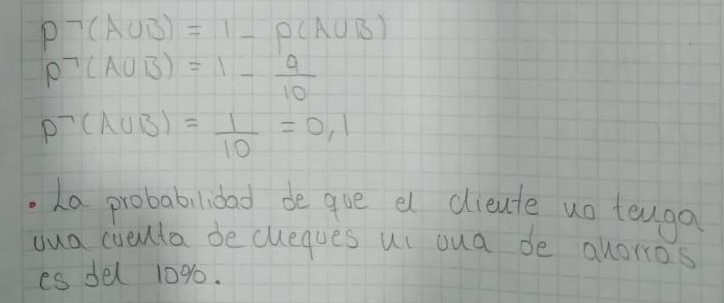 P¬(A∪B) = 1 - P(A∪B)
P¬(A∪B) = 1 - 9/10
P¬(A∪B) = 1/10 = 0,1
• La probabilidad de que el cliente no tenga
una cuenta de cheques ni una de ahorros
es del 10%.